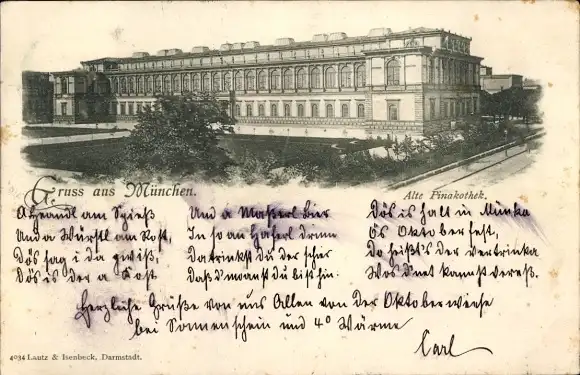 Gruss aus München.
Alte Pinakothek.
A Grandl am Spieß
Und a Würstl am Rost,
Dös sag i da gwiß,
Dös is der a Kost
Und a Maßerl Bier
In so an Haferl drinn
Da trinkst du der schier
Daß d'moanst du bist hin.
Dös is halt in Minka
's Oktoberfest,
Da heißt's der vertrinka
Was d'net kannst verfreß.
Herzliche Grüße von uns Allen von der Oktoberwiese
bei Sonnenschein und 4° Wärme
Carl
4034 Lautz & Isenbeck, Darmstadt.